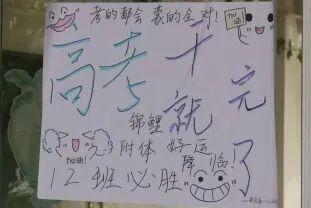 考的都会 蒙的全对!
加油
高考干就完了
锦鲤
附体 好运
降临!
加油!
12班必胜